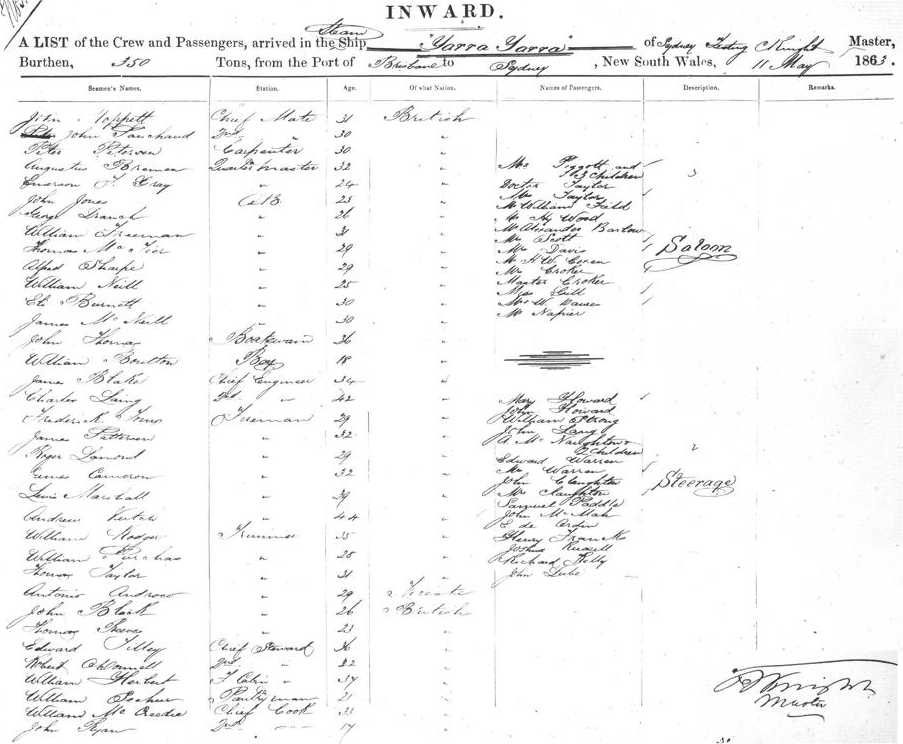 INWARD.
A LIST of the Crew and Passengers, arrived in the Steam Ship "Yarra Yarra" of Sydney Knight Master,
Burthen, 350 Tons, from the Port of Brisbane to Sydney, New South Wales, 11 May 1863.
Seamen's Names. Station. Age. Of what Nation. Names of Passengers. Description. Remarks.
John Moppett Chief Mate 31 British
John 2nd 30 "
Peter Petersen Carpenter 30 "
Augustus Quartermaster 32 "
Emerson J. Gray " 24 "
John Jones A B 23 "
George Branch " 26 "
William Freeman " 31 "
Thomas " 29 "
Alfred Sharpe " 29 "
William Neill " 25 "
Eli Burnett " 30 "
James McNeill " 30 "
John Thomas Boatswain 36 "
William Boulton Boy 18 "
James Blake Chief Engineer 34 "
Charles Laing 2nd " 42 "
Frederick Fireman 29 "
James Patterson " 32 "
Roger " 29 "
James Cameron " 32 "
Lewis Marshall " 29 "
Andrew " 44 "
William Rodger Trimmer 35 "
William Purchas " 28 "
Thomas Taylor " 31 "
Antonio 29
John Black " 26 British
Thomas Reeves " 23 "
Edward Tilley Chief Steward 36 "
Robert O'Donnell 2nd " 22 "
William Herbert 37 "
William Pantryman 21 "
William McCredie Chief Cook 33 "
John Ryan 2nd 17 "
Mrs Piggott and
3 Children
Doctor Taylor
Mrs Taylor
Mr William Field
Mr Hy Wood
Mr Alexander Barlow
Mr Scott
Mr Davis
Mr H W Coxen
Mr Croker
Master Croker
Miss Gill
Mr W.
Mr Napier
Saloon
Mary Howard
John Howard
William Strong
John Lang
A McNaughton
2 Children
Edward Warren
Mrs Warren
John Claughton
Mrs Claughton
Samuel Paddle
John McMah
E de
Henry Franks
Joshua Russell
Richard Kelly
John
Steerage
Knight
Master